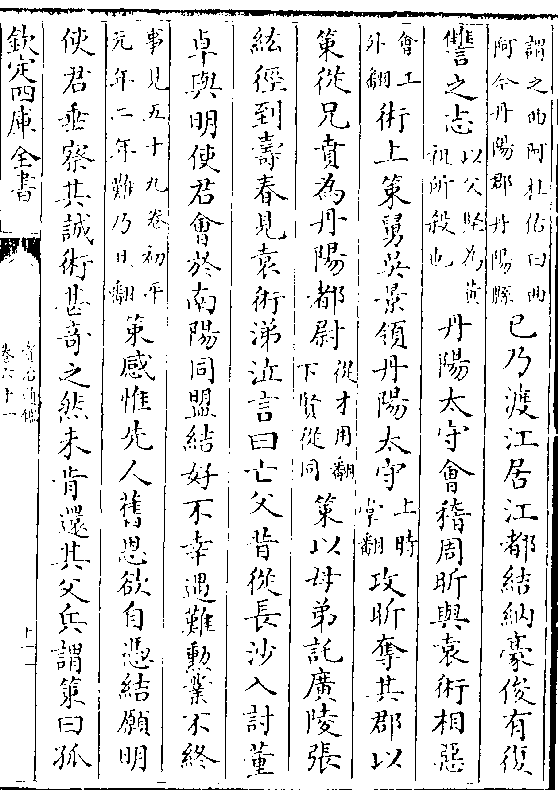 謂之曲阿杜佑曰曲
阿今丹陽郡丹陽縣
已乃渡江居江都結納豪俊有復
讐之志
以父堅為黄
祖所殺也
丹陽太守會稽周昕與袁術相惡
會工
外翻
術上策舅吳景領丹陽太守
上時
掌翻
攻昕奪其郡以
策從兄賁為丹陽都尉
從才用翻
下賢從同
策以母弟託廣陵張
紘徑到壽春見袁術涕泣言曰亡父昔從長沙入討董
卓與明使君會於南陽同盟結好不幸遇難勳業不終
事見五十九卷初平
元年二年難乃旦翻
策感惟先人舊恩欲自憑結願明
使君垂察其誠術甚奇之然未肯還其父兵謂策曰孤
欽定四庫全書
資治通鑑
卷六十一